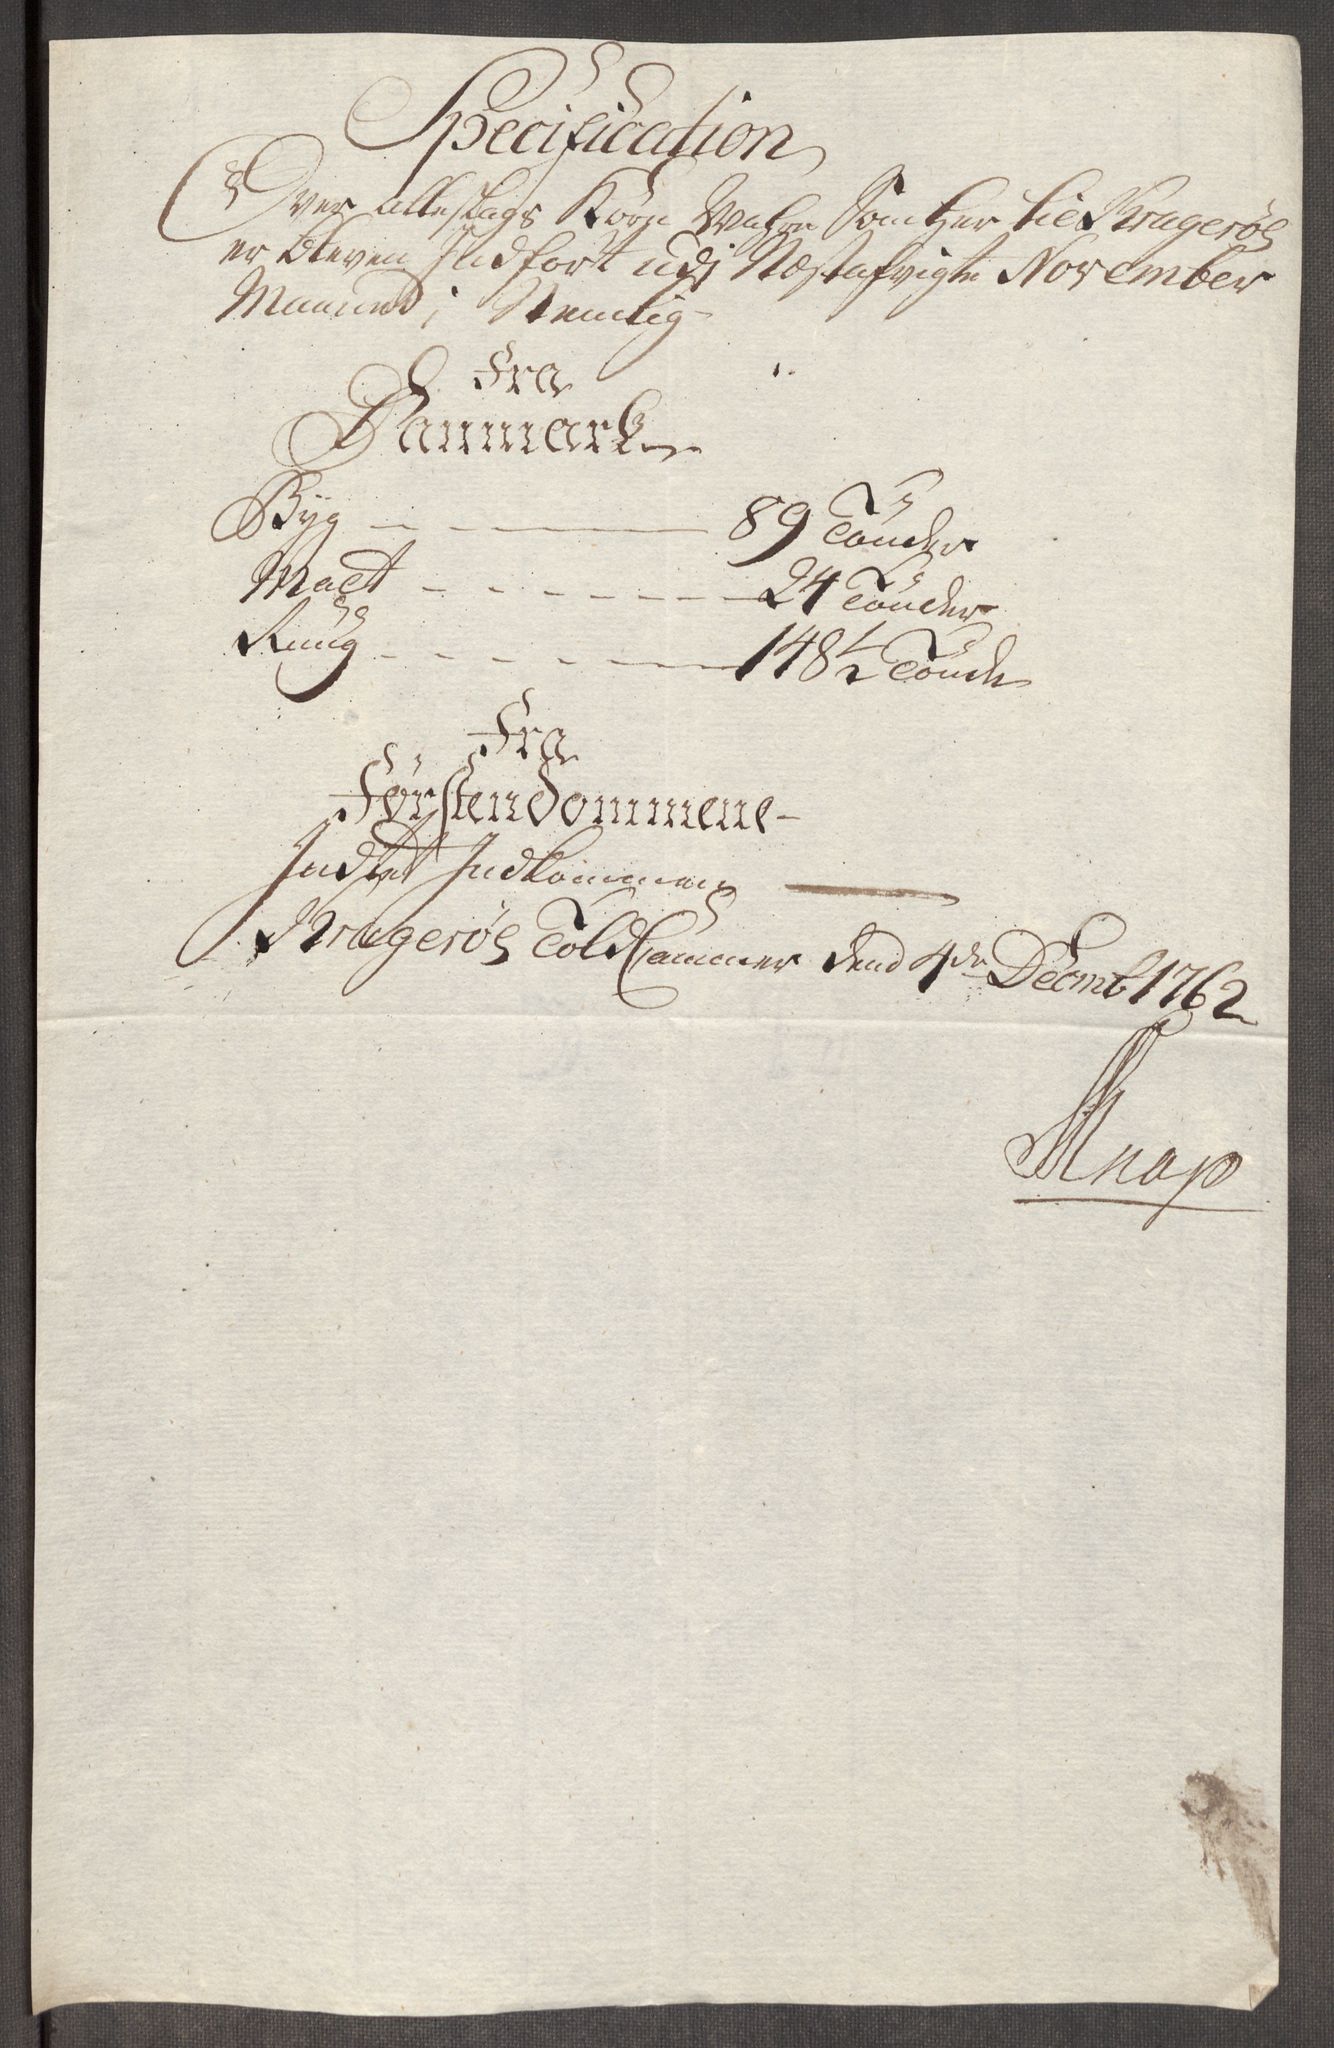 Specification
Over alleslags Korn Wahre Som her til Kragerøe
er bleven Indført udj Næstafvigte November
Maaned, Nemlig
Fra
Danmark
Byg 89 Tønder
Malt 24 Tønder
Rug 148 1/2 Tønde
Fra
Førstendommene
Indtet Indkommen
Kragerøe Told Cammer dend 4de Decmb 1762
Knap